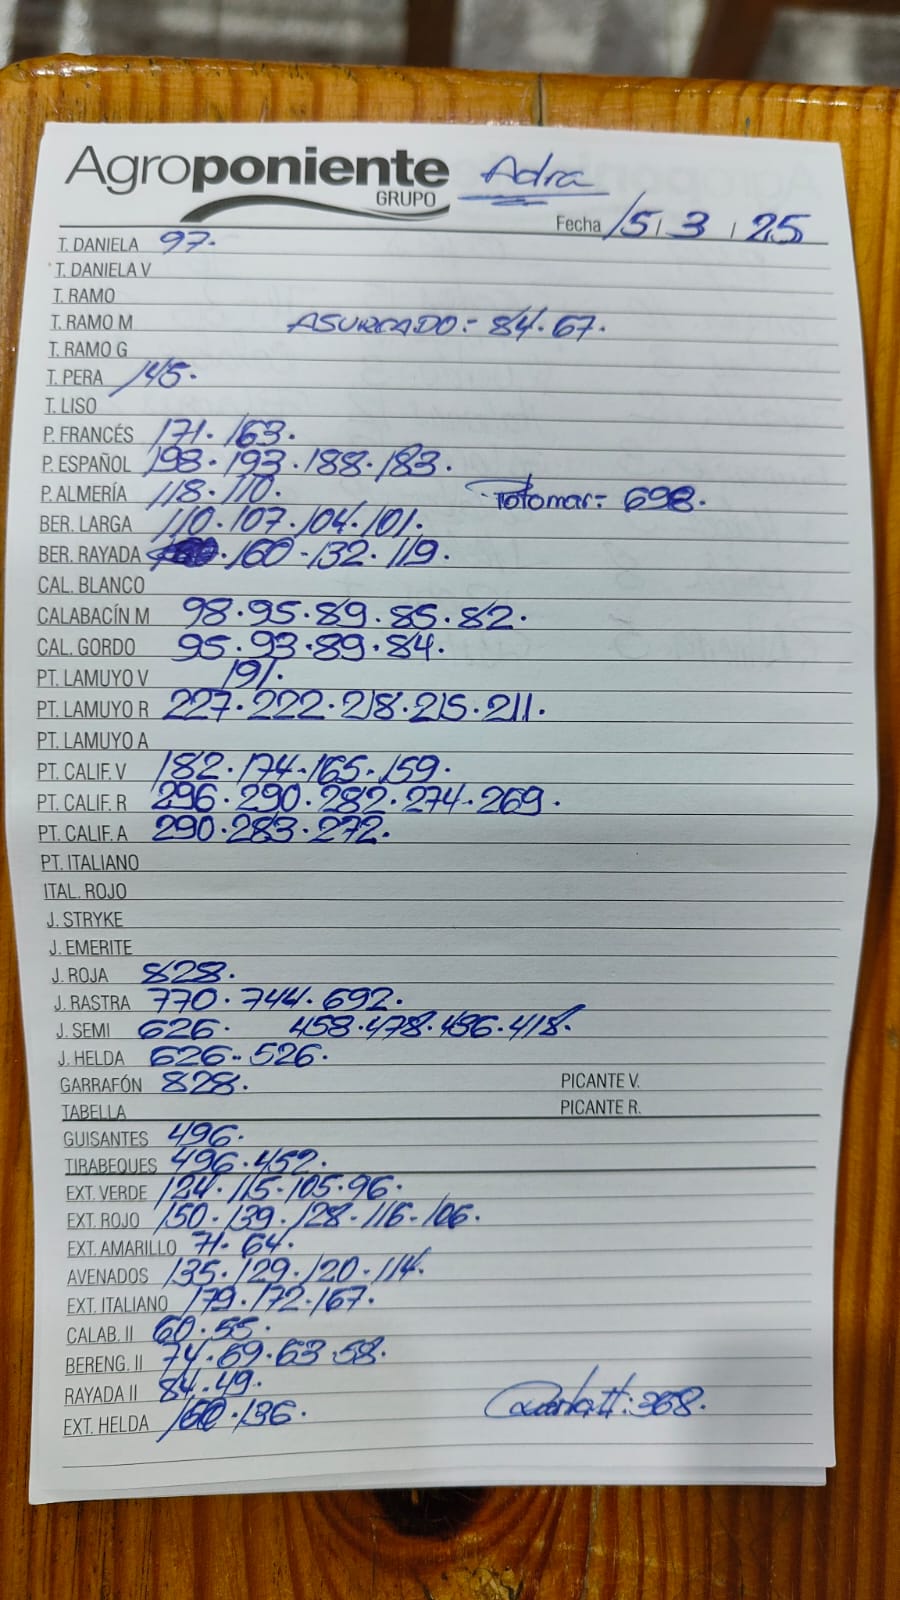 Agroponiente Adra
GRUPO
Fecha 15 / 3 / 25
T. DANIELA 97.
T. DANIELA V
T. RAMO
T. RAMO M ASURCADO:- 84. 67.
T. RAMO G
T. PERA 145.
T. LISO
P. FRANCÉS 171. 163.
P. ESPAÑOL 198. 193. 188. 183.
P. ALMERÍA 118. 110. Totomar:- 698.
BER. LARGA 110. 107. 104. 101.
BER. RAYADA . 160 - 132. 119.
CAL. BLANCO
CALABACÍN M 98. 95. 89. 85. 82.
CAL. GORDO 95. 93. 89. 84.
PT. LAMUYO V 191.
PT. LAMUYO R 227. 222. 218. 215. 211.
PT. LAMUYO A
PT. CALIF. V 182. 174. 165. 159.
PT. CALIF. R 296. 290. 282. 274. 269.
PT. CALIF. A 290. 283. 272.
PT. ITALIANO
ITAL. ROJO
J. STRYKE
J. EMERITE
J. ROJA 828.
J. RASTRA 770. 744. 692.
J. SEMI 626. 458. 478. 436. 418.
J. HELDA 626. 526.
GARRAFÓN 828. PICANTE V.
TABELLA PICANTE R.
GUISANTES 496.
TIRABEQUES 496. 452.
EXT. VERDE 124. 115. 105. 96.
EXT. ROJO 150. 139. 128. 116. 106.
EXT. AMARILLO 71. 64.
AVENADOS 135. 129. 120. 114.
EXT. ITALIANO 179. 172. 167.
CALAB. II 60. 55.
BERENG. II 74. 69. 63. 58.
RAYADA II 84. 49.
EXT. HELDA 160. 136. 368.